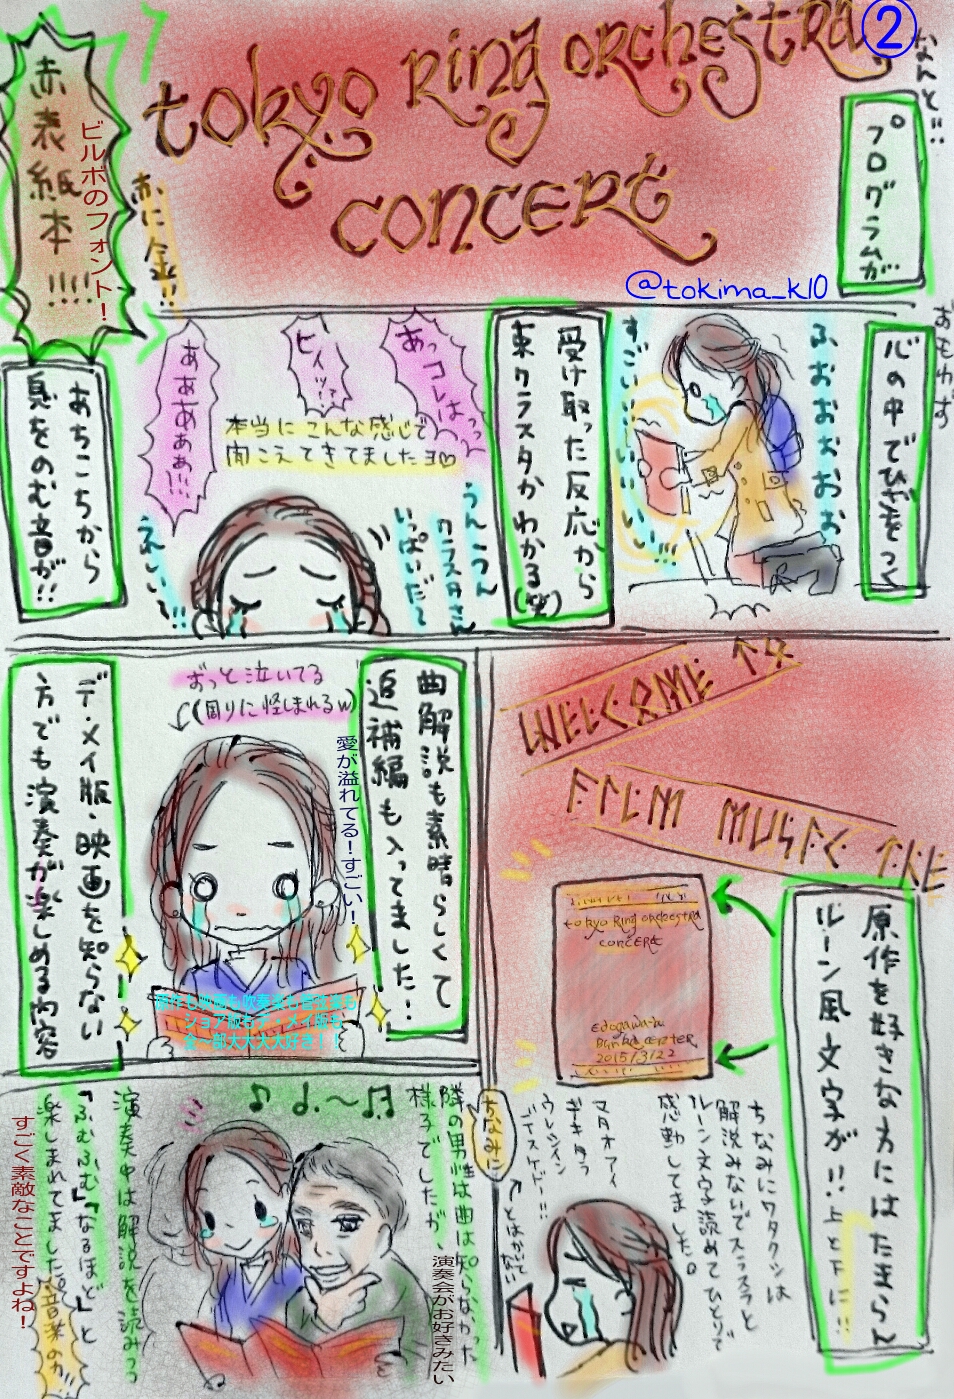 ②
tokyo Ring orchestra
concert
@tokima_k10
なんと!!
プログラムが
赤に金!!
赤表紙本!!!!
ビルボのフォント!
おもわず
心の中でひざをつく
ふおおおおお
すごいいいいい!!!
受け取った反応から
東クラスタかわかる(笑)
あっコレはっっ
ヒィッ!?
ああああぁ!!!
本当にこんな感じで
聞こえてきてましたヨ♡
うんうん
クラスタさん
いっぱいだ〜
うれしい〜!!
あちこちから
息をのむ音が!!
WELCOME TO
FILM MUSIC THE
原作を好きな方にはたまらん
ルーン風文字が!!上と下に!!
tokyo Ring orchestra
concert
Edogawa-ku
Bunka center
2015/3/22
ちなみにワタクシは
解説みないでスラスラと
ルーン文字読めてひとりで
感動してました。
ちなみに
マタオアイ
デキタラ
ウレシイン
デイスケドー!!
↑とはかいてない
曲解説も素晴らしくて
追補編も入ってました!
ずっと泣いてる
(周りに怪しまれるw)
愛が溢れてる!すごい!
原作も映画も吹奏楽も管弦楽も
ショア版もデ・メイ版も
全〜部大大大大好き!!
デ・メイ版・映画を知らない
方でも演奏が楽しめる内容
♪ ♩.〜♬
隣の男性は曲は知らなかった
様子でしたが、
演奏会がお好きみたい
演奏中は解説を読みつつ
「ふむふむ」「なるほど」と
楽しまれてました。
音楽の力!!
すごく素敵なことですよね!